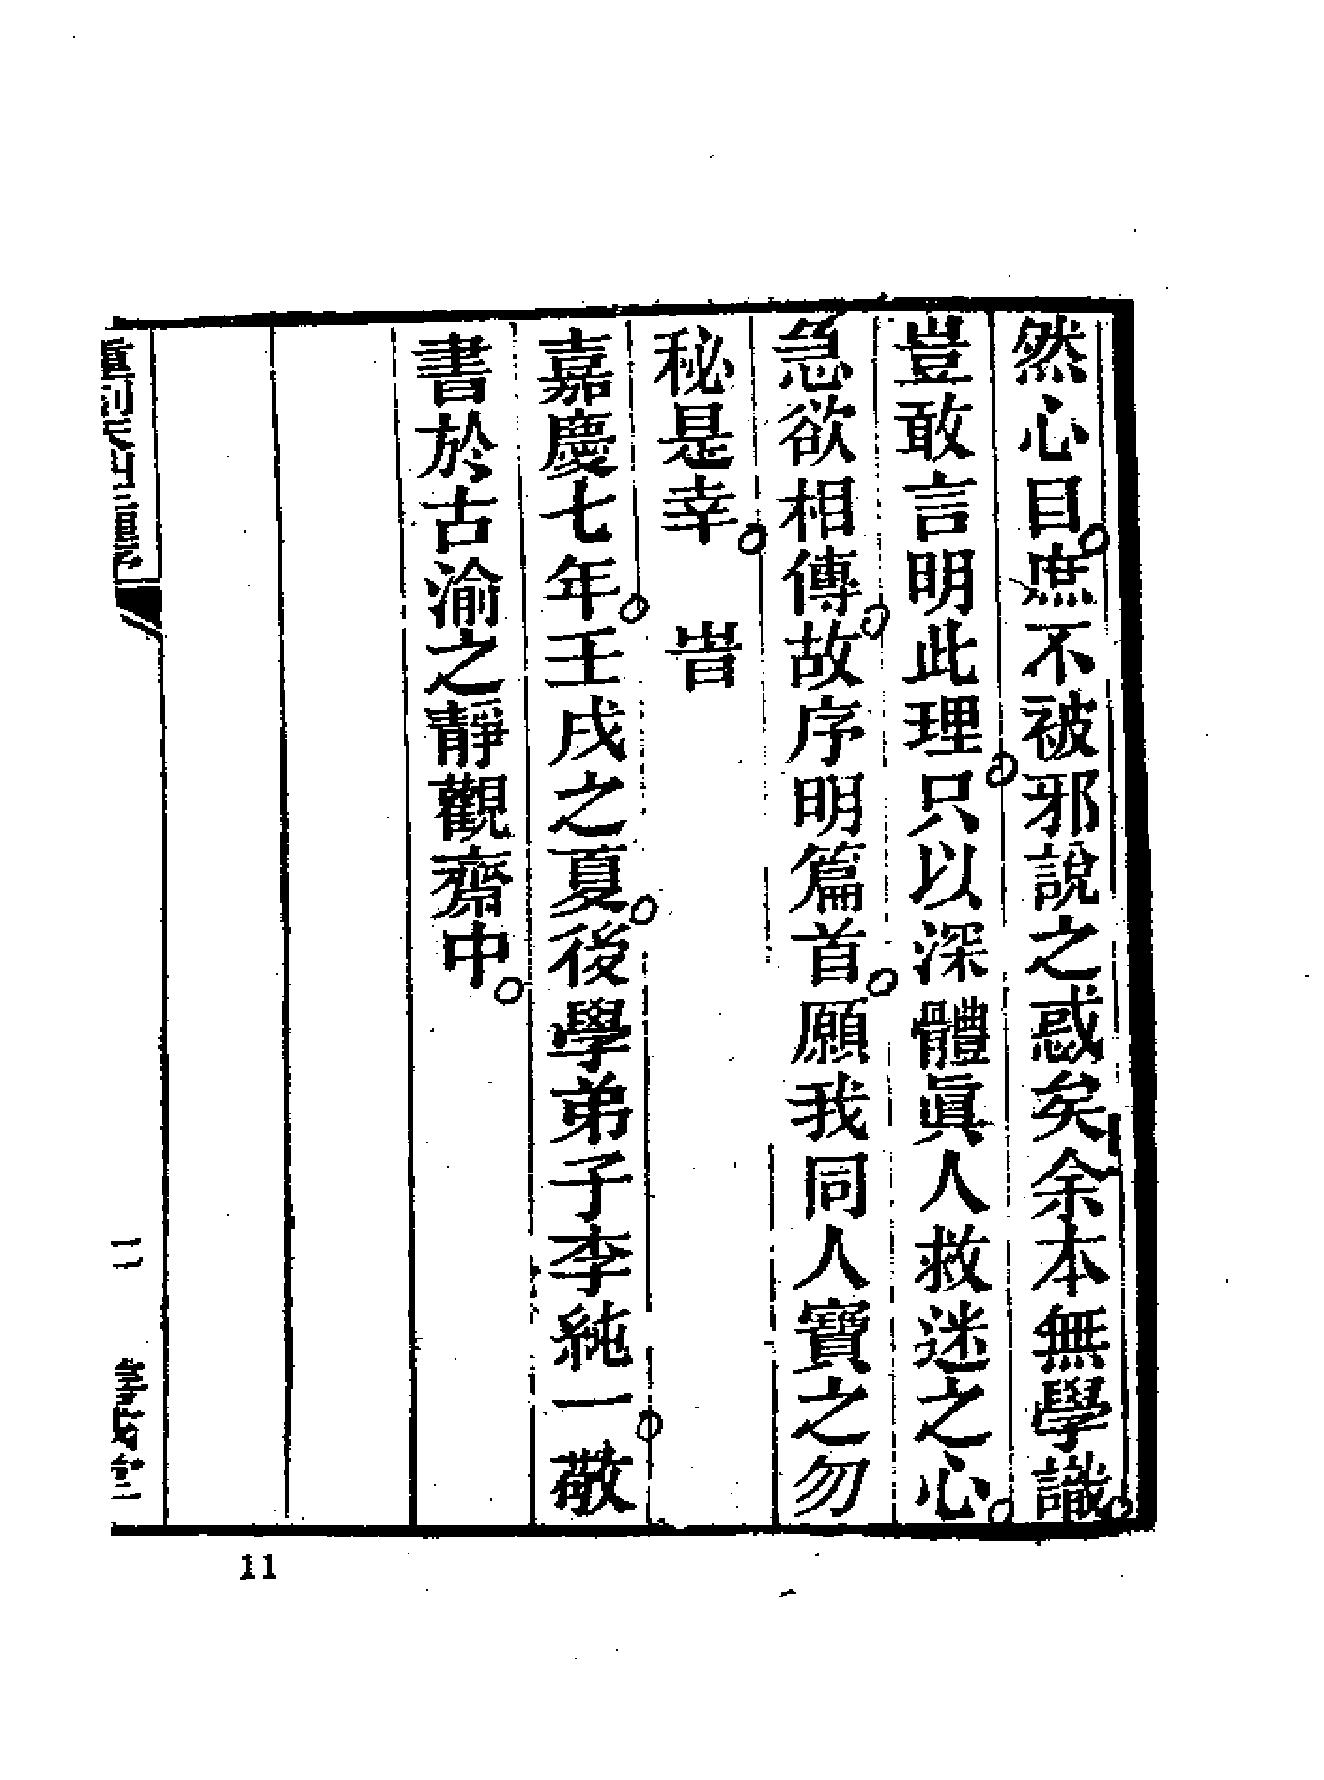 然心目。庶不被邪說之惑矣余本無學識。
豈敢言明此理。只以深體眞人救迷之心。
急欲相傳。故序明篇首。願我同人寶之勿
秘是幸。 旹
嘉慶七年。壬戌之夏。後學弟子李純一。敬
書於古渝之靜觀齋中。
重刻天仙正理序
二
11